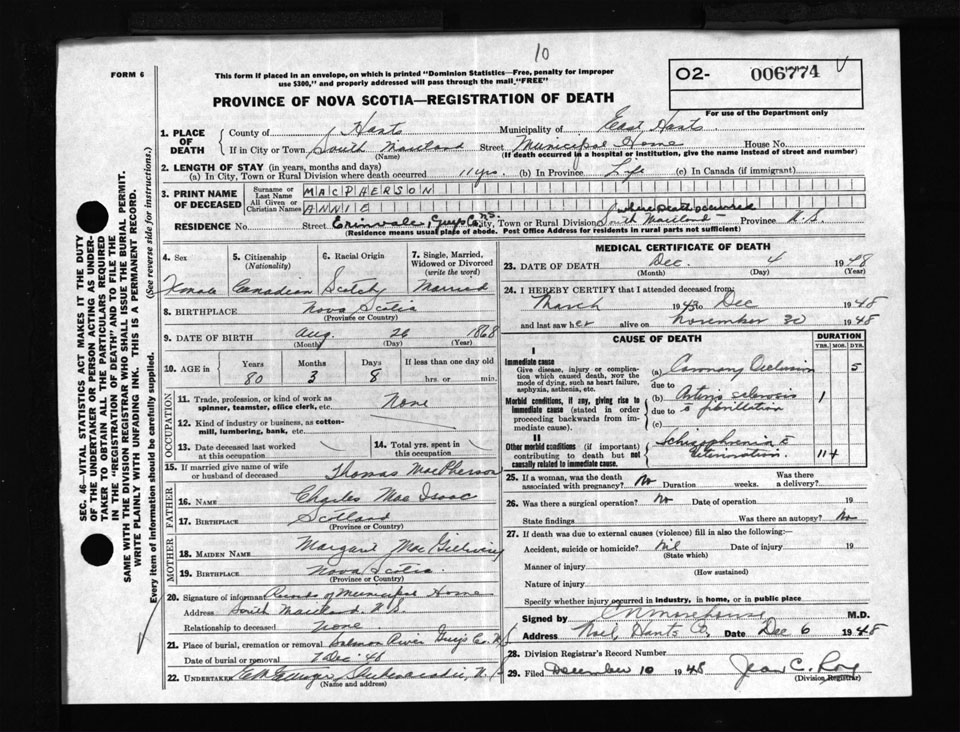 10
FORM 6
This form if placed in an envelope, on which is printed "Dominion Statistics—Free, penalty for improper
use $300," and properly addressed will pass through the mail "FREE"
O2- 006774
For use of the Department only
PROVINCE OF NOVA SCOTIA—REGISTRATION OF DEATH
1. PLACE OF DEATH
County of Hants Municipality of East Hants
If in City or Town South Maitland Street Municipal Home House No.
(Name) (If death occurred in a hospital or institution, give the name instead of street and number)
2. LENGTH OF STAY (in years, months and days)
(a) In City, Town or Rural Division where death occurred 11 yrs. (b) In Province Life (c) In Canada (if immigrant)
3. PRINT NAME OF DECEASED
Surname or Last Name MACPHERSON
All Given or Christian Names ANNIE
where death occurred
RESIDENCE No. Street Erinvale, Guys Co. N.S. City, Town or Rural Division South Maitland Province N.S.
(Residence means usual place of abode. Post Office Address for residents in rural parts not sufficient)
4. Sex 5. Citizenship (Nationality) 6. Racial Origin 7. Single, Married, Widowed or Divorced (write the word)
Female Canadian Scotch Married
8. BIRTHPLACE Nova Scotia
(Province or Country)
9. DATE OF BIRTH Aug. 26 1868
(Month) (Day) (Year)
10. AGE in Years Months Days If less than one day old
80 3 8 hrs. or min.
OCCUPATION
11. Trade, profession, or kind of work as
spinner, teamster, office clerk, etc. None
12. Kind of industry or business, as cotton-
mill, lumbering, bank, etc.
13. Date deceased last worked at this occupation
14. Total yrs. spent in this occupation
15. If married give name of wife
or husband of deceased Thomas MacPherson
FATHER
16. NAME Charles Mac Isaac
17. BIRTHPLACE Scotland
(Province or Country)
MOTHER
18. MAIDEN NAME Margaret Mac Gillivray
19. BIRTHPLACE Nova Scotia.
(Province or Country)
20. Signature of informant Records of Municipal Home
Address South Maitland, N.S.
Relationship to deceased none.
21. Place of burial, cremation or removal Salmon River Guys Co. N.S.
Date of burial or removal 7 Dec. 48
22. UNDERTAKER Shubenacadie, N.S.
(Name and address)
MEDICAL CERTIFICATE OF DEATH
23. DATE OF DEATH Dec. 4 1948
(Month) (Day) (Year)
24. I HEREBY CERTIFY that I attended deceased from:
March 1943 to Dec 1948
and last saw her alive on November 30 1948
CAUSE OF DEATH
DURATION
YRS. MOS. DYS.
I
Immediate cause
Give disease, injury or complication which caused death, NOT the mode of dying, such as heart failure, asphyxia, asthenia, etc.
(a) Coronary Occlusion 5
due to
Morbid conditions, if any, giving rise to immediate cause (stated in order proceeding backwards from immediate cause).
(b) Arterio sclerosis 1
due to c̄ fibrillation
(c)
II
Other morbid conditions (if important) contributing to death but not causally related to immediate cause.
Schizophrenia c̄
deterioration. 11+
25. If a woman, was the death
associated with pregnancy? No Duration weeks. Was there a delivery?
26. Was there a surgical operation? No Date of operation 19
State findings Was there an autopsy? No
27. If death was due to external causes (violence) fill in also the following:
Accident, suicide or homicide? Nil Date of injury 19
(State which)
Manner of injury
(How sustained)
Nature of injury
Specify whether injury occurred in industry, in home, or in public place
Signed by Morehouse M.D.
Address Noel, Hants Co. Date Dec 6 1948
28. Division Registrar's Record Number
29. Filed December 10 1948 Jean C. Roy
(Division Registrar)
SEC. 46—VITAL STATISTICS ACT MAKES IT THE DUTY
OF THE UNDERTAKER OR PERSON ACTING AS UNDER-
TAKER TO OBTAIN ALL THE PARTICULARS REQUIRED
IN THE "REGISTRATION OF DEATH" AND TO FILE THE
SAME WITH THE DIVISION REGISTRAR WHO SHALL ISSUE THE BURIAL PERMIT.
WRITE PLAINLY WITH UNFADING INK. THIS IS A PERMANENT RECORD.
Every item of information should be carefully supplied. (See reverse side for instructions.)